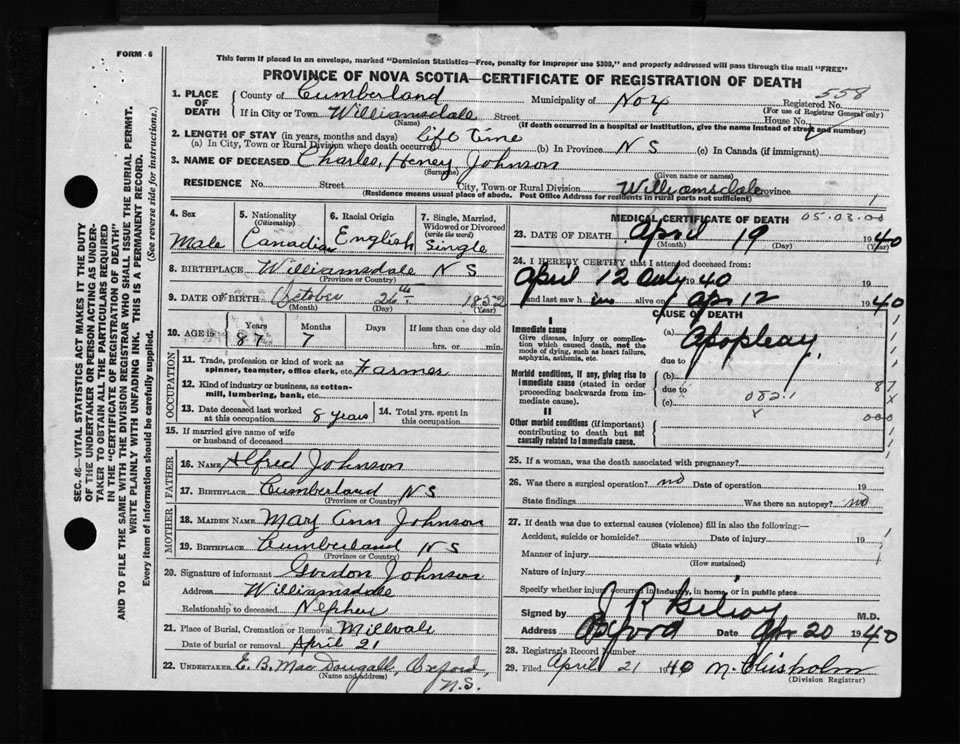 FORM - 6
This form if placed in an envelope, marked "Dominion Statistics—Free, penalty for improper use $300," and properly addressed will pass through the mail "FREE"
PROVINCE OF NOVA SCOTIA—CERTIFICATE OF REGISTRATION OF DEATH
558
1. PLACE OF DEATH County of Cumberland Municipality of No 4 Registered No.
(For use of Registrar General only)
If in City or Town Williamsdale Street House No.
(Name) (If death occurred in a hospital or institution, give the name instead of street and number)
2. LENGTH OF STAY (in years, months and days) life time
(a) In City, Town or Rural Division where death occurred (b) In Province N S (c) In Canada (if immigrant)
3. NAME OF DECEASED Charles, Henry Johnson
(Surname) (Given name or names)
RESIDENCE No. Street City, Town or Rural Division Williamsdale Province 1
(Residence means usual place of abode. Post Office Address for residents in rural parts not sufficient)
4. Sex Male
5. Nationality (Citizenship) Canadian
6. Racial Origin English
7. Single, Married, Widowed or Divorced (write the word) Single
8. BIRTHPLACE Williamsdale N S
(Province or Country)
9. DATE OF BIRTH October 26th 1852
(Month) (Day) (Year)
10. AGE in Years Months Days If less than one day old
87 7 hrs. or min.
OCCUPATION
11. Trade, profession or kind of work as spinner, teamster, office clerk, etc. Farmer
12. Kind of industry or business, as cotton-mill, lumbering, bank, etc.
13. Date deceased last worked at this occupation 8 years
14. Total yrs. spent in this occupation
15. If married give name of wife or husband of deceased
FATHER
16. NAME Alfred Johnson
17. BIRTHPLACE Cumberland N S
(Province or Country)
MOTHER
18. MAIDEN NAME Mary Ann Johnson
19. BIRTHPLACE Cumberland N S
(Province or Country)
20. Signature of informant Gordon Johnson
Address Williamsdale
Relationship to deceased Nephew
21. Place of Burial, Cremation or Removal Millvale
Date of burial or removal April 21
22. UNDERTAKER E. B. MacDougall, Oxford,
(Name and address) N.S.
MEDICAL CERTIFICATE OF DEATH 05.03.00
23. DATE OF DEATH April 19 1940
(Month) (Day) (Year)
24. I HEREBY CERTIFY that I attended deceased from:
April 12 only 1940 19
and last saw h im alive on Apr 12 1940
CAUSE OF DEATH
I
Immediate cause
Give disease, injury or complication which caused death, not the mode of dying, such as heart failure, asphyxia, asthenia, etc.
(a) Apoplexy
due to
Morbid conditions, if any, giving rise to immediate cause (stated in order proceeding backwards from immediate cause).
(b)
due to 87
(c) 082.1 x
x
II
Other morbid conditions (if important) contributing to death but not causally related to immediate cause.
000
25. If a woman, was the death associated with pregnancy?
26. Was there a surgical operation? no Date of operation 19
State findings Was there an autopsy? no
27. If death was due to external causes (violence) fill in also the following:—
Accident, suicide or homicide? Date of injury 19
(State which)
Manner of injury
(How sustained)
Nature of injury
Specify whether injury occurred in industry, in home, or in public place
Signed by J R Gilroy M.D.
Address Oxford Date Apr 20 1940
28. Registrar's Record Number
29. Filed April 21 1940 M. Chisholm
(Division Registrar)
SEC. 46—VITAL STATISTICS ACT MAKES IT THE DUTY
OF THE UNDERTAKER OR PERSON ACTING AS UNDER-
TAKER TO OBTAIN ALL THE PARTICULARS REQUIRED
IN THE "CERTIFICATE OF REGISTRATION OF DEATH"
AND TO FILE THE SAME WITH THE DIVISION REGISTRAR WHO SHALL ISSUE THE BURIAL PERMIT.
WRITE PLAINLY WITH UNFADING INK. THIS IS A PERMANENT RECORD.
Every item of information should be carefully supplied. (See reverse side for instructions.)